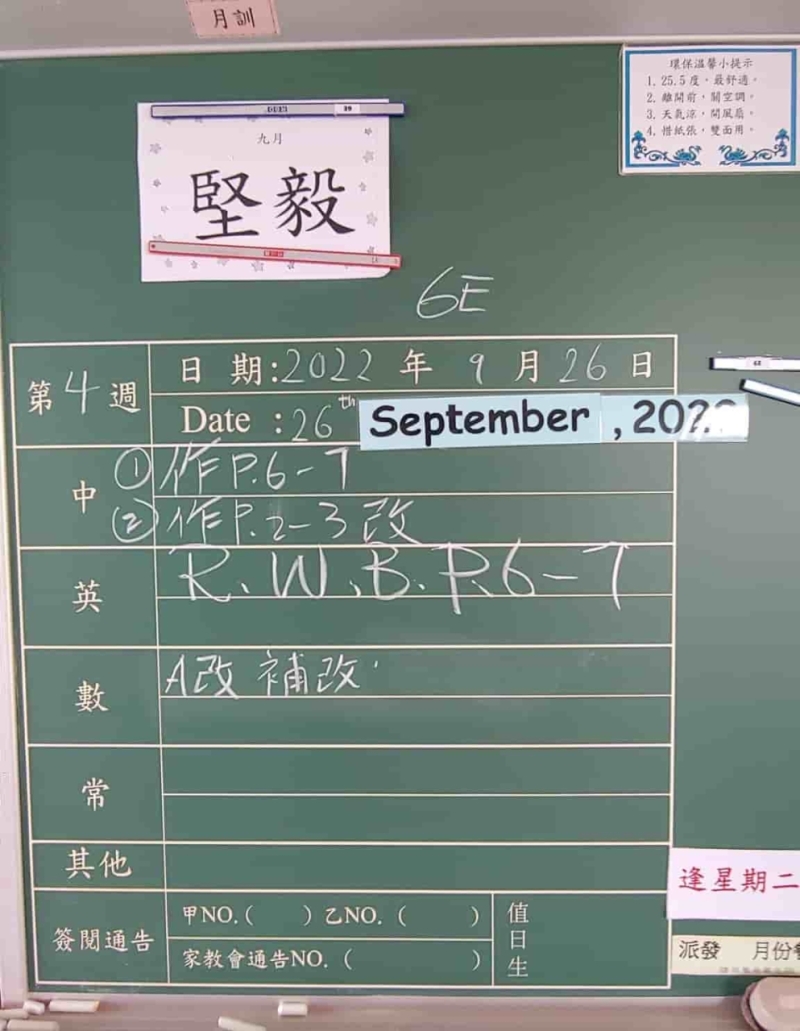 月訓
環保溫馨小提示
1. 25.5度，最舒適。
2. 離開前，關空調。
3. 天氣涼，開風扇。
4. 惜紙張，雙面用。
九月
堅毅
6E
第4週
日期:2022年9月26日
Date : 26th September, 2022
中
①作P.6-7
②作P.2-3改
英
R.W.B.P.6-7
數
A改 補改
常
其他
簽閱通告
甲NO.( ) 乙NO.( )
家教會通告NO.( )
值日生
逢星期二
派發 月份